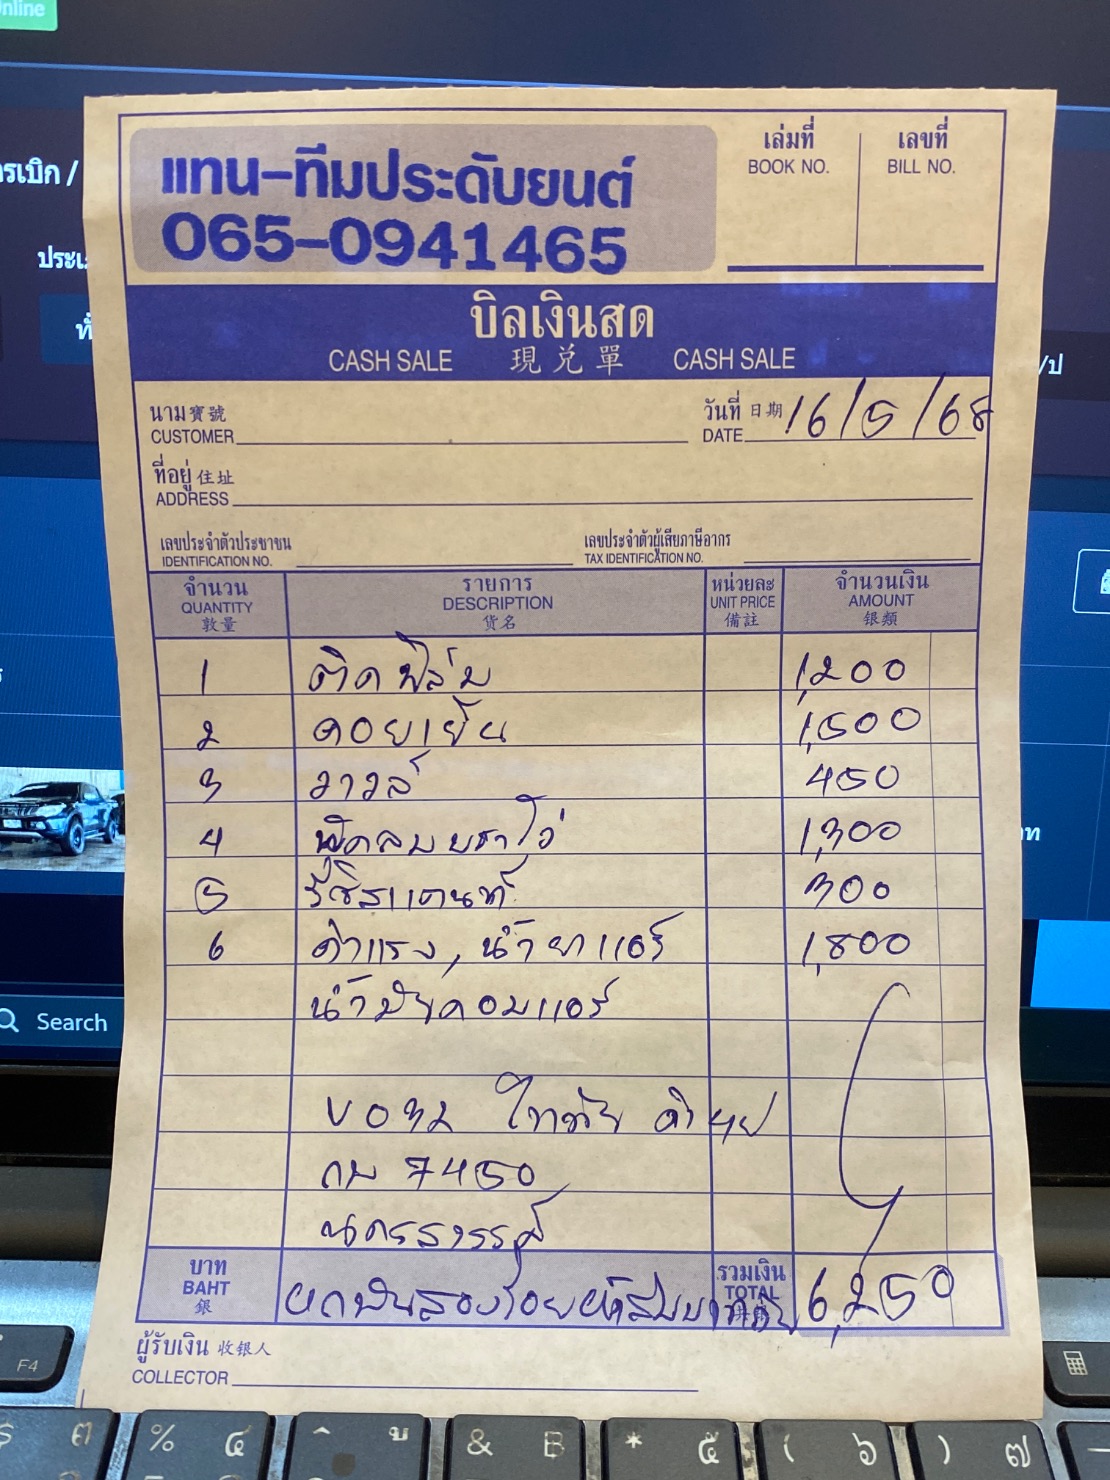 Online
รเบิก /
แทน-ทีมประดับยนต์
065-0941465
เล่มที่
BOOK NO.
เลขที่
BILL NO.
บิลเงินสด
CASH SALE 現兑單 CASH SALE
นาม 寶號
CUSTOMER
วันที่ 日期 16/5/68
DATE
ที่อยู่ 住址
ADDRESS
เลขประจำตัวประชาชน
IDENTIFICATION NO.
เลขประจำตัวผู้เสียภาษีอากร
TAX IDENTIFICATION NO.
จำนวน รายการ หน่วยละ จำนวนเงิน
QUANTITY DESCRIPTION UNIT PRICE AMOUNT
敦量 货名 備註 银類
1 ติดฟิล์ม 1,200
2 คอยเย็น 1,500
3 วาวล์ 450
4 พัดลมบราโว่ 1,300
5 รีซิสแตนท์ 300
6 ค่าแรง, น้ำยาแอร์ 1,800
น้ำมันคอมแอร์
กม 7450
นครสวรรค์
บาท
BAHT
銀
หกพันสองร้อยห้าสิบบาท
รวมเงิน
TOTAL
6,250
ผู้รับเงิน 收银人
COLLECTOR
Search
F4
% ๔
& B
* ๕
( ๖
) ๗